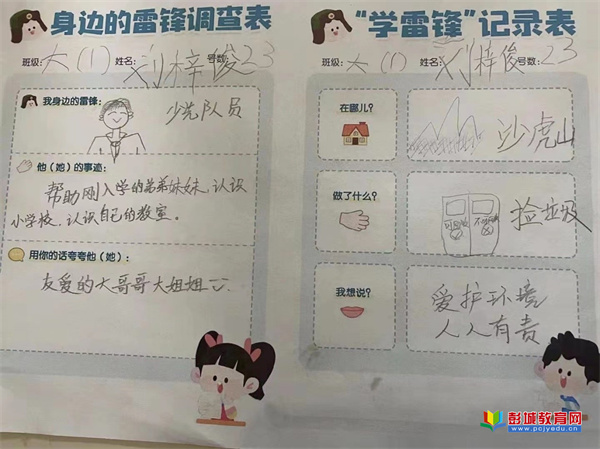 身边的雷锋调查表
班级:大(1) 姓名:刘梓俊 号数:23
我身边的雷锋:
少先队员
他(她)的事迹:
帮助刚入学的弟弟妹妹,认识
小学校,认识自己的教室。
用你的话夸夸他(她):
友爱的大哥哥大姐姐
“学雷锋”记录表
班级:大(1) 姓名:刘梓俊 号数:23
在哪儿?
沙虎山
做了什么?
可回收
捡垃圾
我想说?
爱护环境
人人有责
彭城教育网
www.pcjyedu.cn